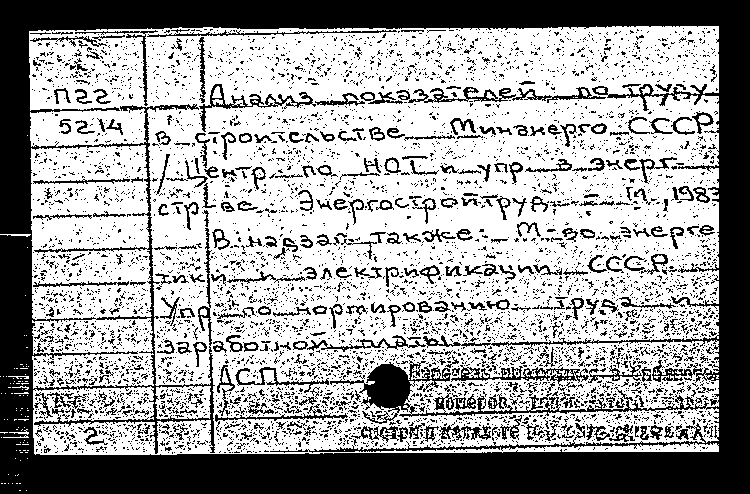 П22 Анализ показателей по труду
5214 в строительстве Минэнерго СССР
/ Центр по НОТ и упр. в энерг.
стр-ве Энергостройтруд. - М., 1983
В надзаг. также: М-во энерге
тики и электрификации СССР.
Упр. по нормированию труда и
заработной платы.
ДСП
номеров этого
смотри в каталоге
2